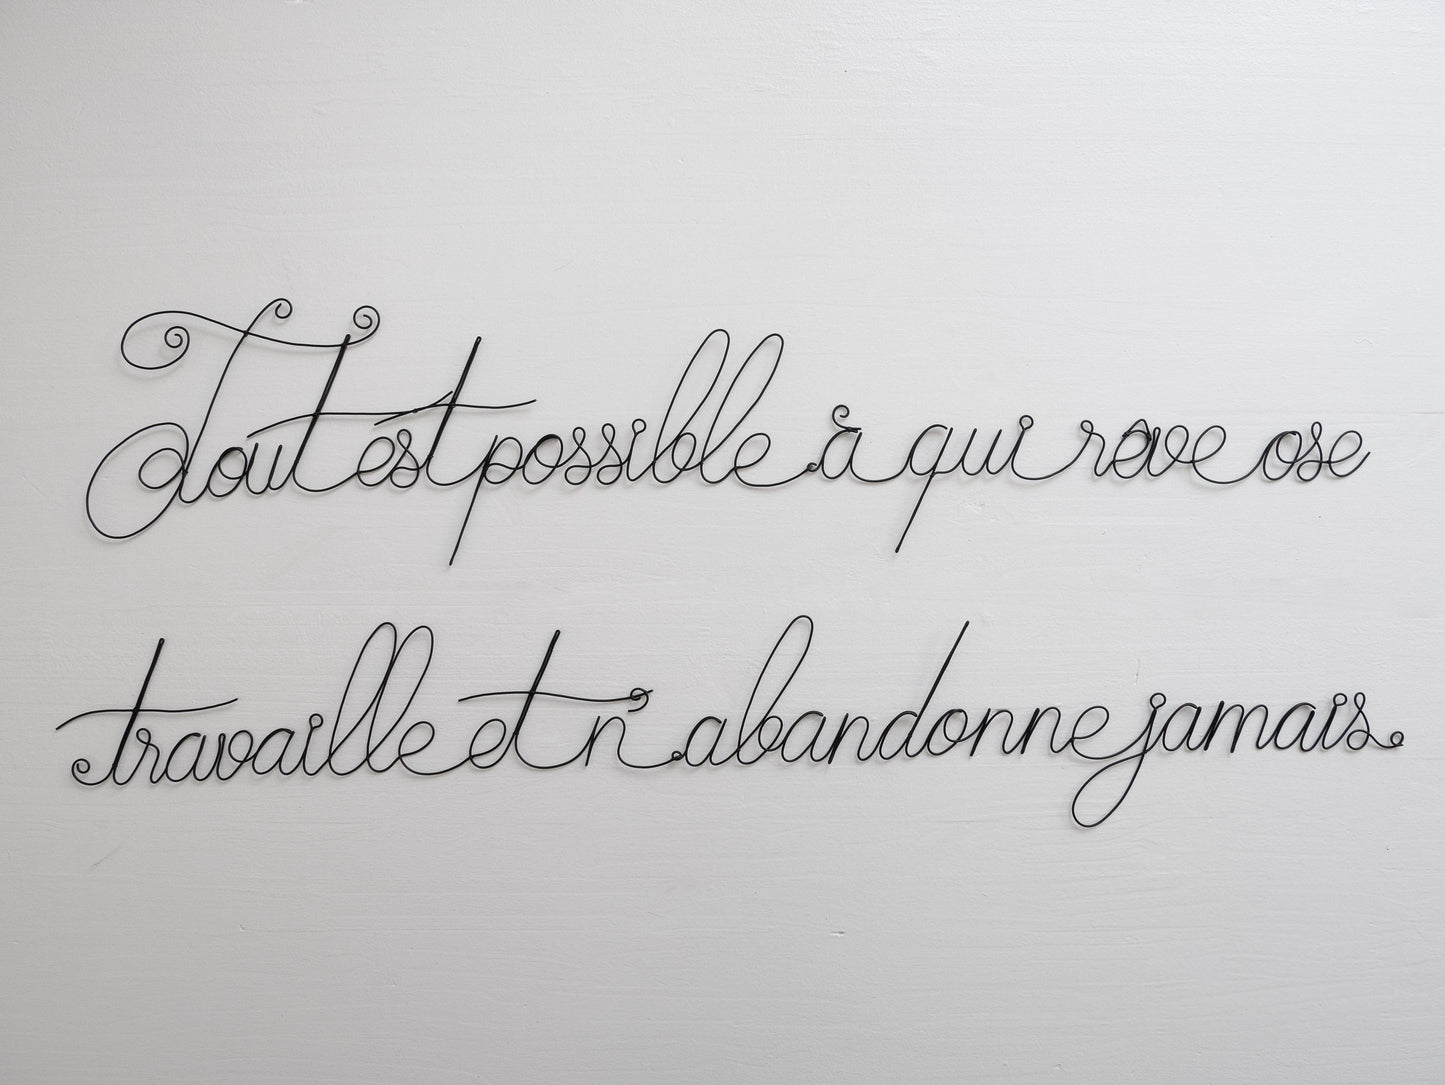 Tout est possible à qui rêve ose
travaille et n'abandonne jamais.